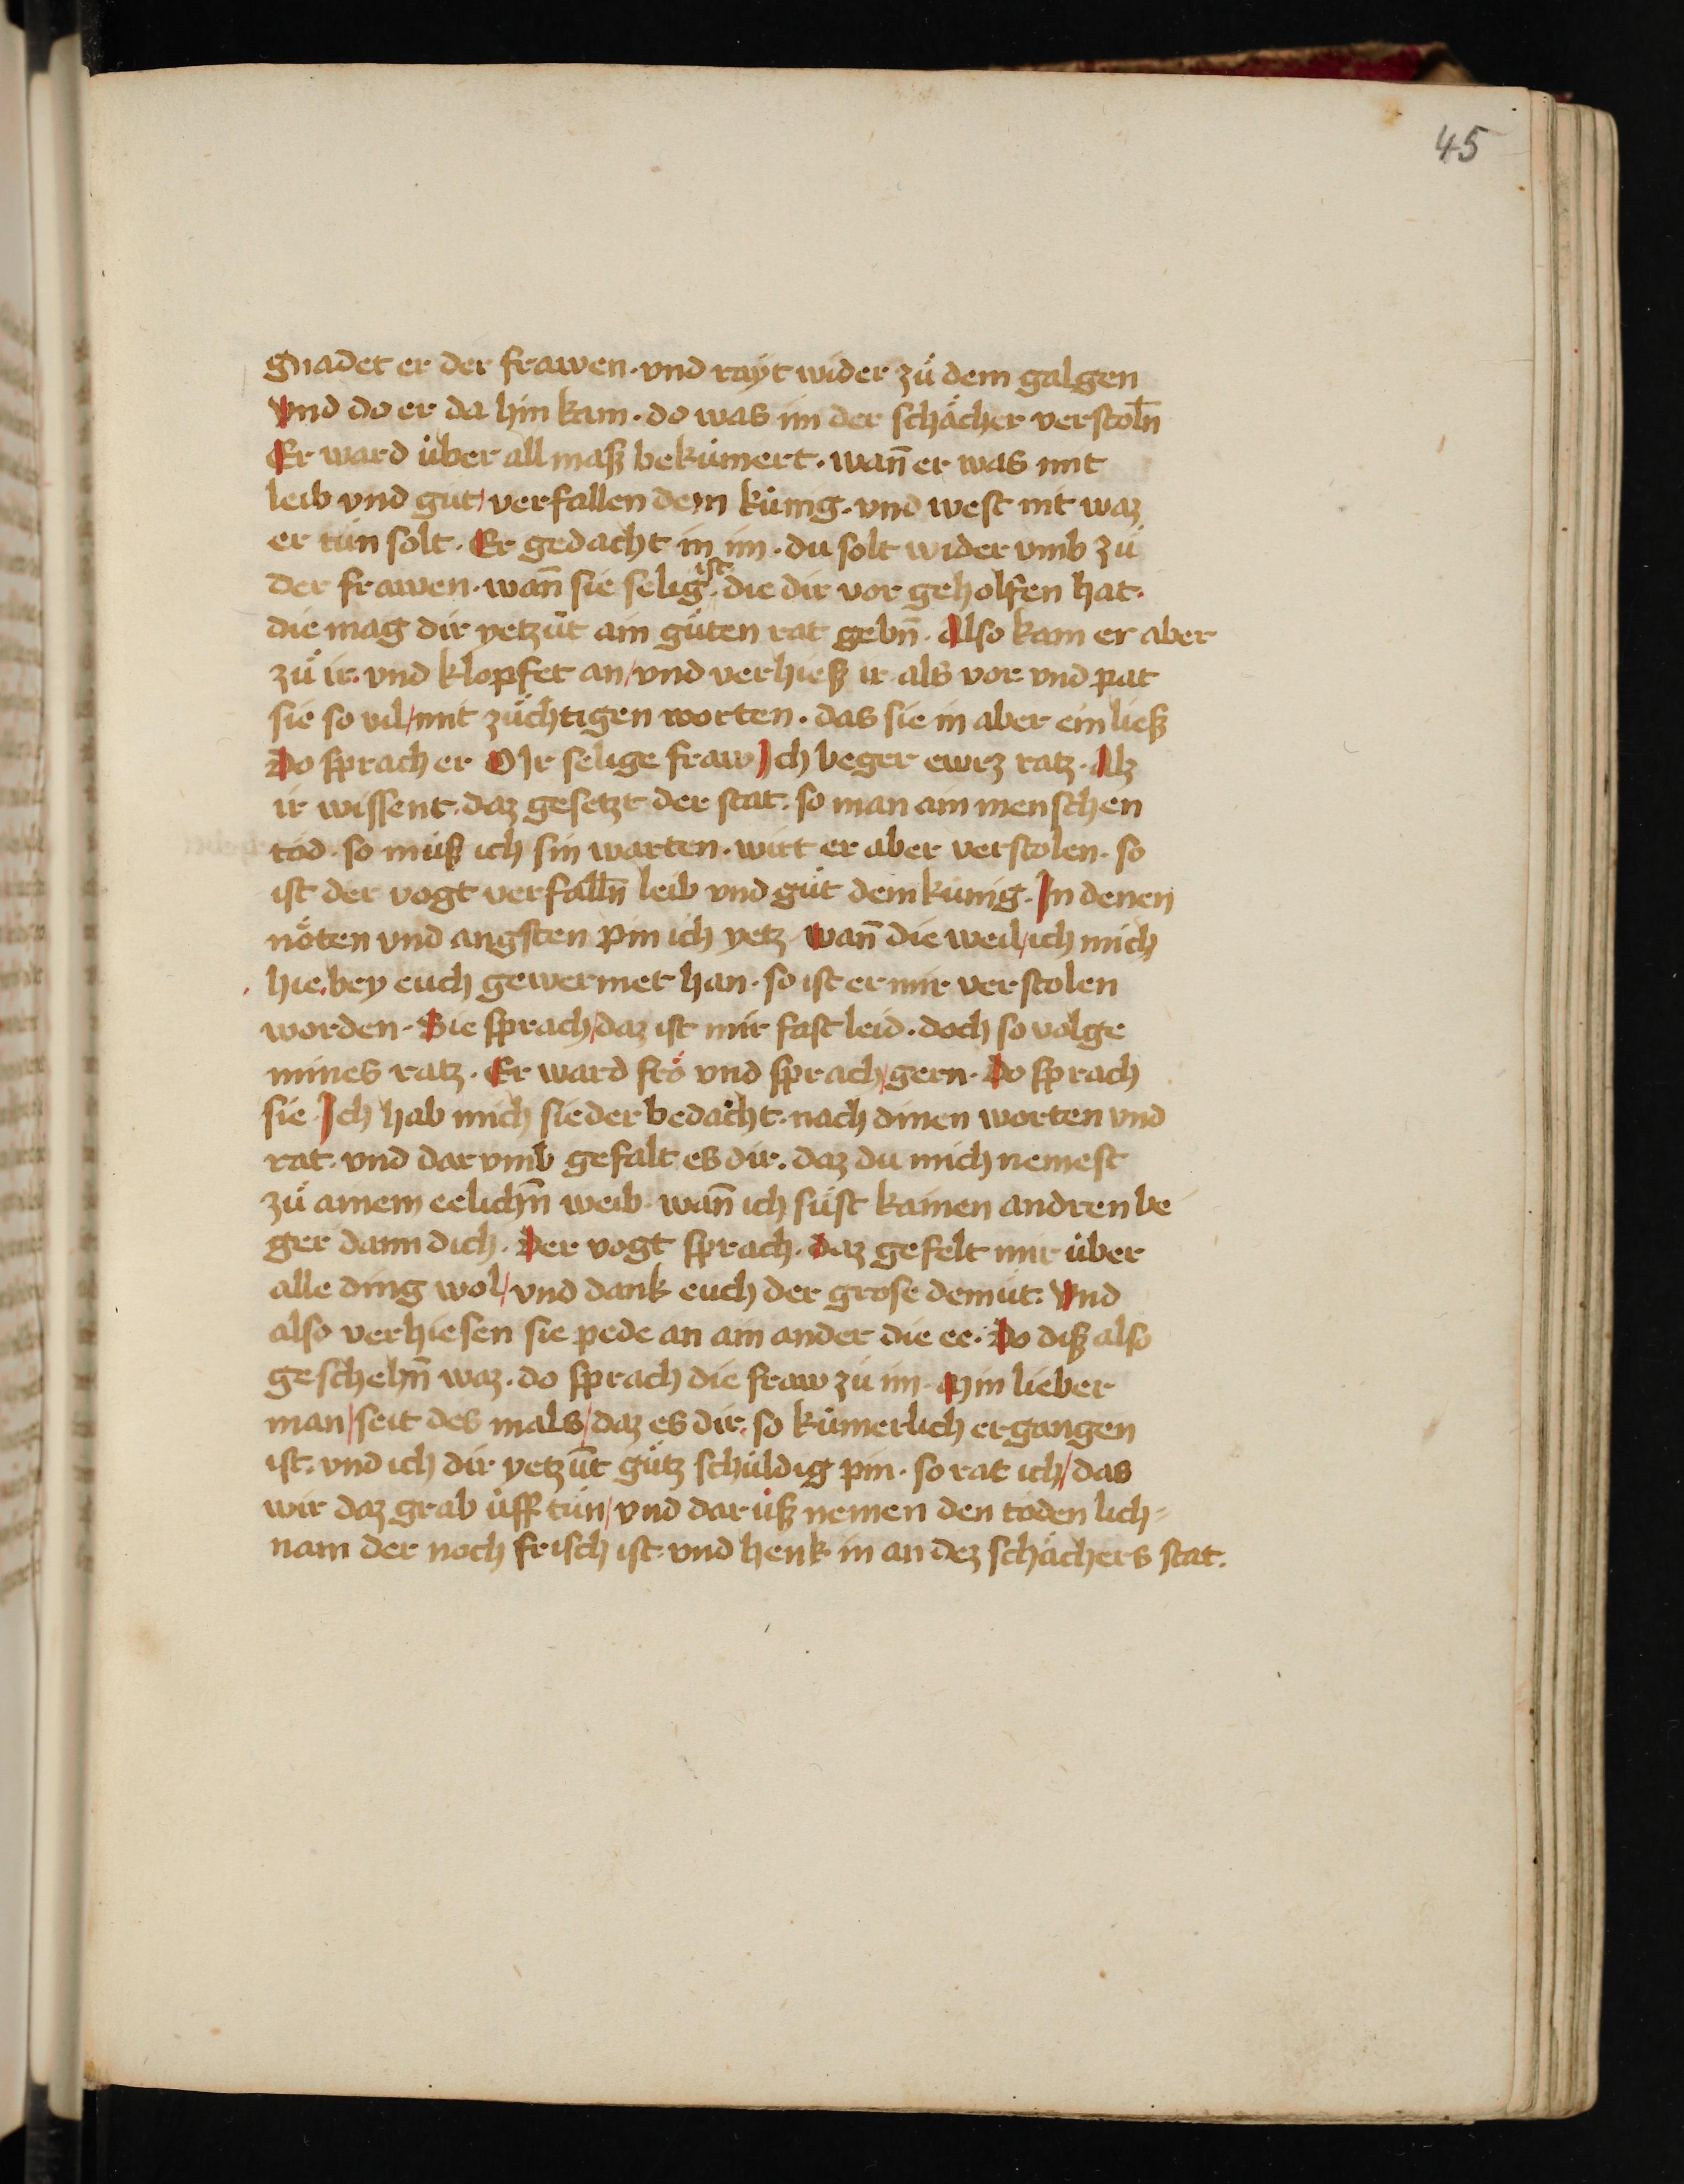 45
gnadet er der frawen · vnd rayt wider zů dem galgen
Vnd do er da hin kam · do was im der schächer verstoln̄
Er ward über all maß bekümert · wan̄ er was mit
leib vnd gůt / verfallen dem künig · vnd west nit waz
er tün solt · Er gedacht in im · du solt wider vmb zů
der frawen · wan̄ sie selig ist · die dir vor geholfen hat ·
die mag dir yetzūt ain gůten rat gebn̄ · Also kam er aber
zů ir · vnd klopfet an / vnd verhieß ir als vor vnd pat
sie so vil / mit züchtigen worten · das sie in aber ein ließ
Do sprach er O Ir selige fraw Ich beger ewrz ratz · Alz
ir wissent · daz gesetzt der stat · so man ain menschen
töd · so můß ich sin warten · wirt er aber verstolen · so
ist der vogt verfalln̄ leib vnd gůt dem künig · In denen
nöten vnd angsten pin ich yetz Wan̄ die weil / ich mich
hie bey euch gewermet han · so ist er mir verstolen
worden · Sie sprach / daz ist mir fast leid · doch so volge
mines ratz · Er ward frö vnd sprach / gern · Do sprach
sie Ich hab mich sieder bedacht · nach dinen worten vnd
rat · vnd dar vmb gefalt es dir · daz du mich nemest
zů ainem eelichn̄ weib · wan̄ ich süst kainen andren be
ger dann dich · Der vogt sprach · Daz gefelt mir über
alle ding wol / vnd dank euch der grose demüt · Vnd
also verhiesen sie pede an ain ander die ee · Do diß also
geschehn̄ waz · do sprach die fraw zů im · Min lieber
man / seit des mals / daz es dir so kümerlich ergangen
ist · vnd ich dir yetzūt gůtz schüldig pin · so rat ich / das
wir daz grab üff tün / vnd dar üß nemen den toden lich-
nam der noch frisch ist · vnd henk in an dez schächers stat ·